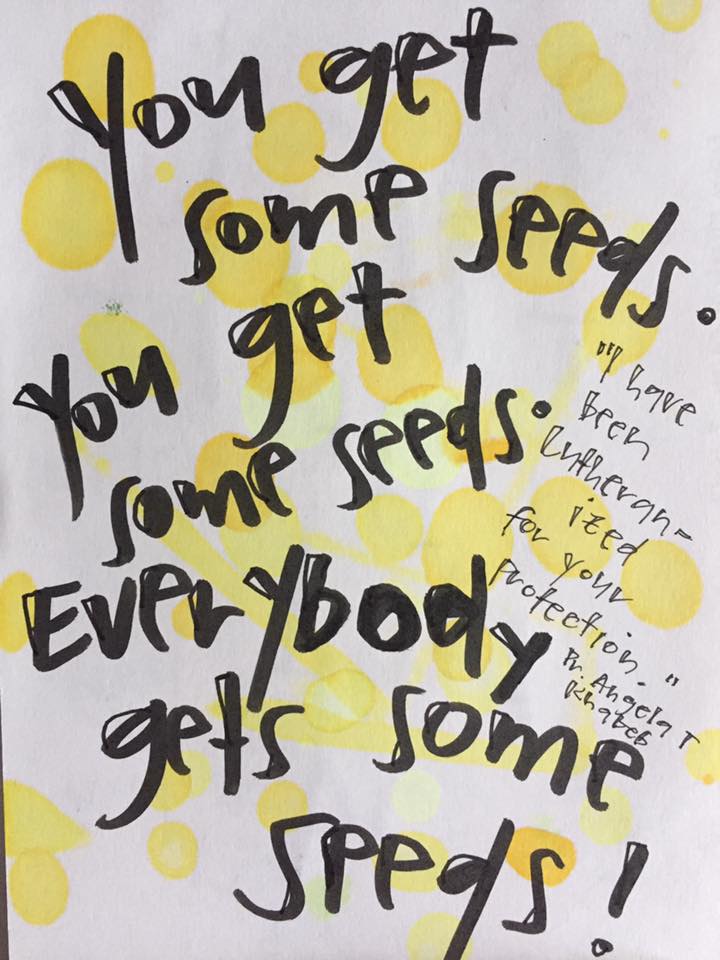 You get
some seeds.
You get
some seeds.
Everybody
gets some
seeds!
"I have
been
Lutheran-
ized
for your
protection."
Pr. Angela T
Khabeb